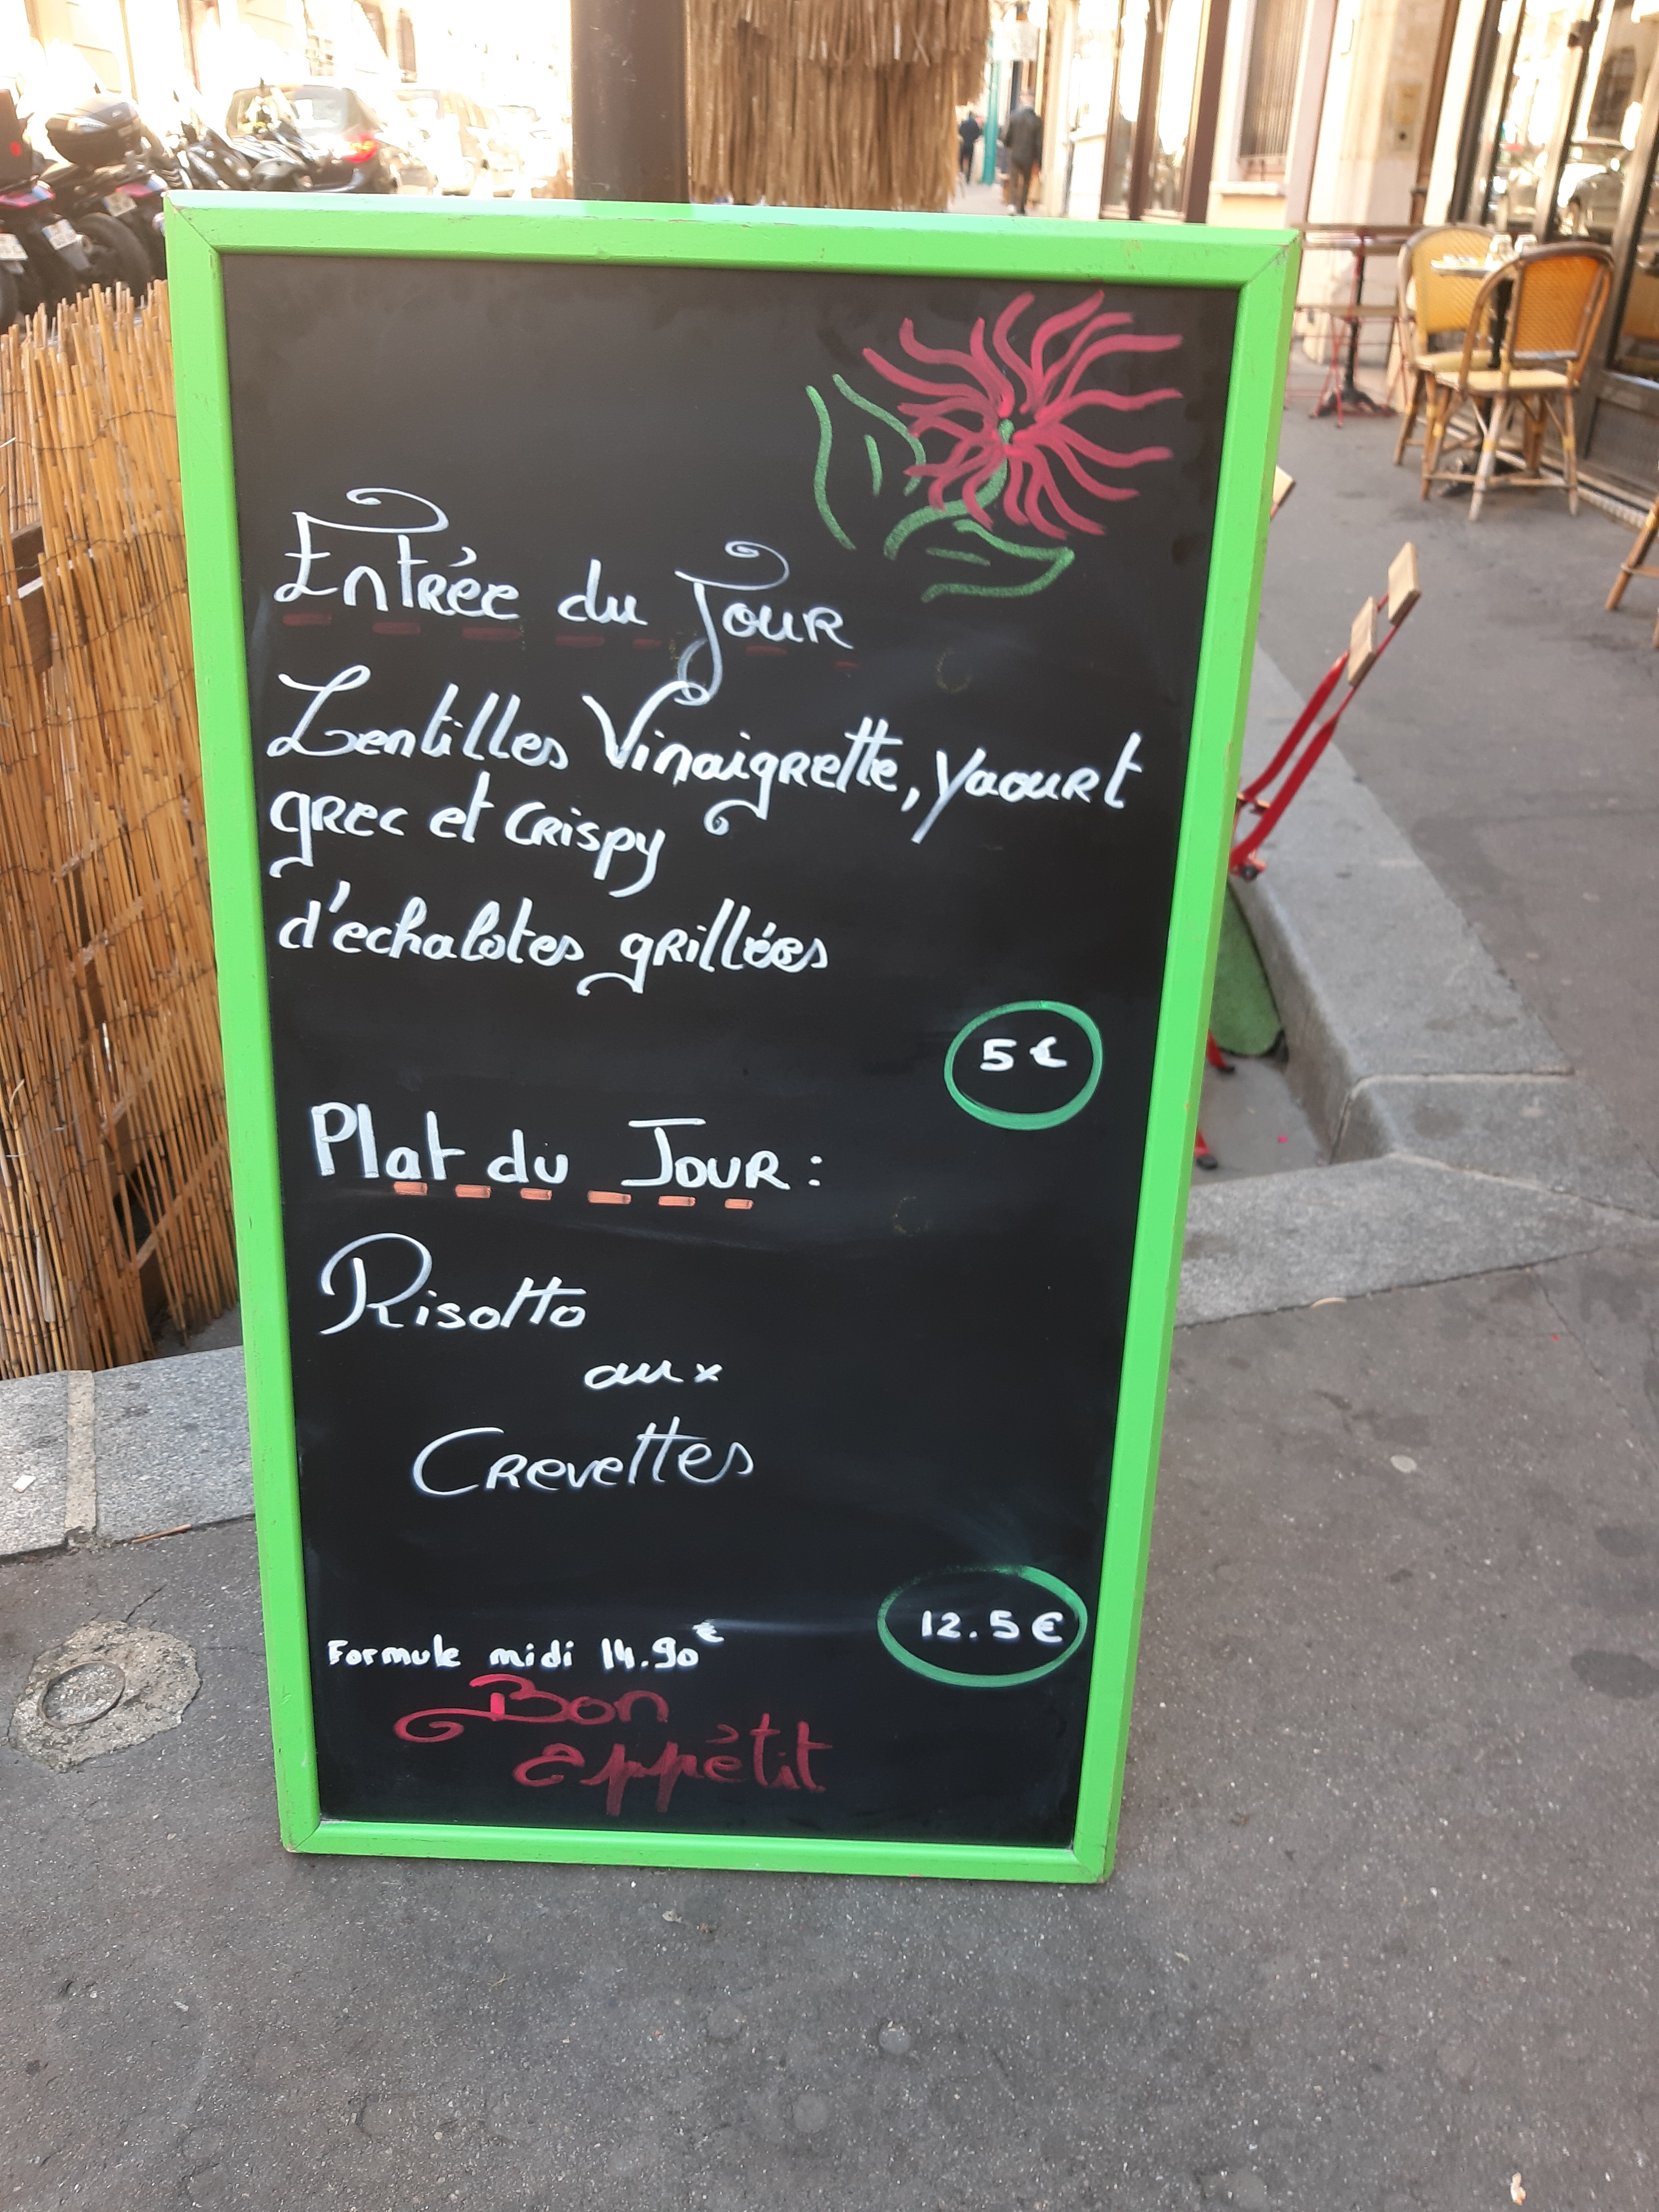 Entrée du Jour
Lentilles Vinaigrette, Yaourt
grec et crispy
d'echalotes grillées
5 €
Plat du Jour :
Risotto
aux
Crevettes
12.5 €
Formule midi 14.90 €
Bon
appétit